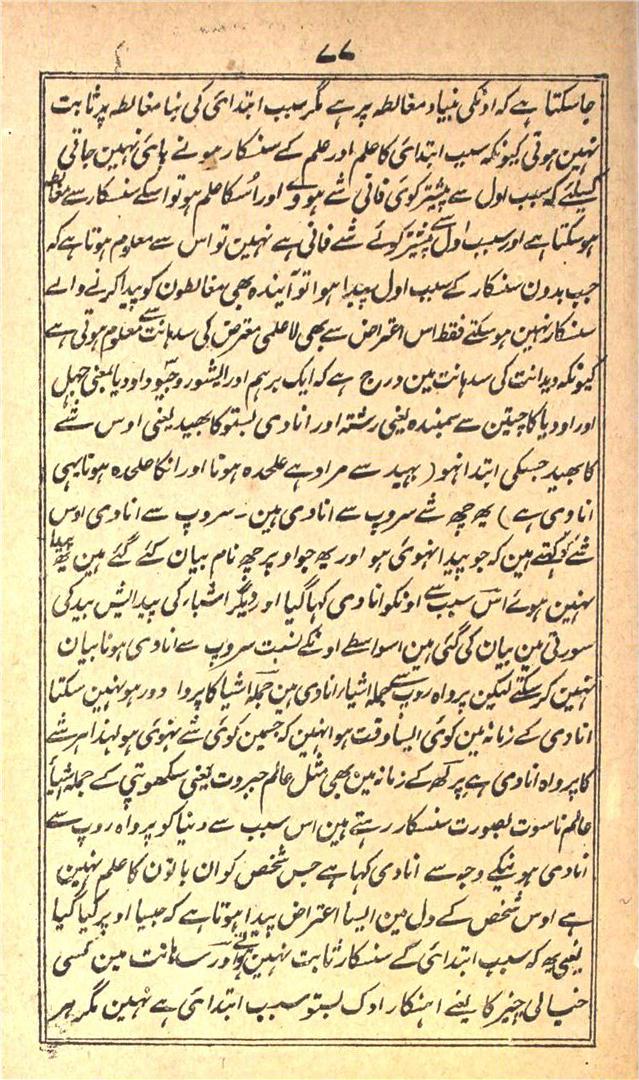 ۷۷
جاسکتا ہے کہ اونکی بنیاد مغالطہ پر ہے مگر سبب ابتدائی کی بنا مغالطہ پر ثابت
نہین ہوتی کیونکہ سبب ابتدائی کا علم اور علم کے سنسکار ہونے پائی نہین جاتی
کسلئے کہ سبب اول سے پیشتر کوئی فانی شے ہووے اور اُسکا علم ہو تو اسکے سنسکار سے مغالطہ
ہوسکتا ہے اور سبب اول سے پیشتر کوئے شے فانی ہے نہین تو اس سے معلوم ہوتا ہے کہ
جب بدون سنسکار کے سبب اول پیدا ہوا تو آیندہ بھی مغالطون کو پیدا کرنے والے
سنسکار نہین ہوسکتے فقط اس اعتراض سے بھی لاعلمی معترض کی سدہانت سے معلوم ہوتی ہے
کیونکہ ویدانت کی سدہانت مین درج ہے کہ ایک برہم اور ایشور و جیو و اودیا بمعنی جہل
اور اودیا کا چیتن سے سمبندہ یعنی رشتہ اور انادی بستو کا بھید یعنی اوس شے
کا بھید جسکی ابتدا نہو ( بہید سے مراد ہے علحدہ ہونا اور انکا علحدہ ہونا یہی
انادی ہے ) یہ چھ شے سروپ سے انادی ہین ۔ سروپ سے انادی اوس
شے کو کہتے ہین کہ جو پیدا نہوئی ہو اور یہ جو اوپر چھ نام بیان کئے گئے ہین یہ پیدا
نہین ہوئے اس سبب سے اونکو انادی کہا گیا اور دیگر اشیاء کی پیدایش بید کی
سورتی مین بیان کی گئی ہین اسواسطے اونکے نسبت سروپ سے انادی ہونا بیان
نہین کرسکتے لیکن پرواہ روپ سے جملہ اشیاء انادی ہین جملہ اشیا کا پروا دور ہو نہین سکتا
انادی کے زمانہ مین کوئی ایسا وقت ہوا نہین کہ جسمین کوئی شے نہوئی ہو لہذا ہر شے
کا پرواہ انادی ہے پرلے کے زمانہ مین بھی مثل عالم جبروت یعنی سکھوپتی کے جملہ اشیاء
عالم ناسوت بصورت سنسکار رہتے ہین اس سبب سے دنیا کو پرواہ روپ سے
انادی ہونیکے وجہ سے انادی کہا ہے جس شخص کو ان باتون کا علم نہین
ہے اوس شخص کے دل مین ایسا اعتراض پیدا ہوتا ہے کہ جیسا اوپر کیا گیا
یعنی یہ کہ سبب ابتدائی کے سنسکار ثابت نہین ہوتے اور سدہانت مین کسی
خیالی چیز کا یعنے اہنکار ادک بستو سبب ابتدائی ہے نہین مگر ہر